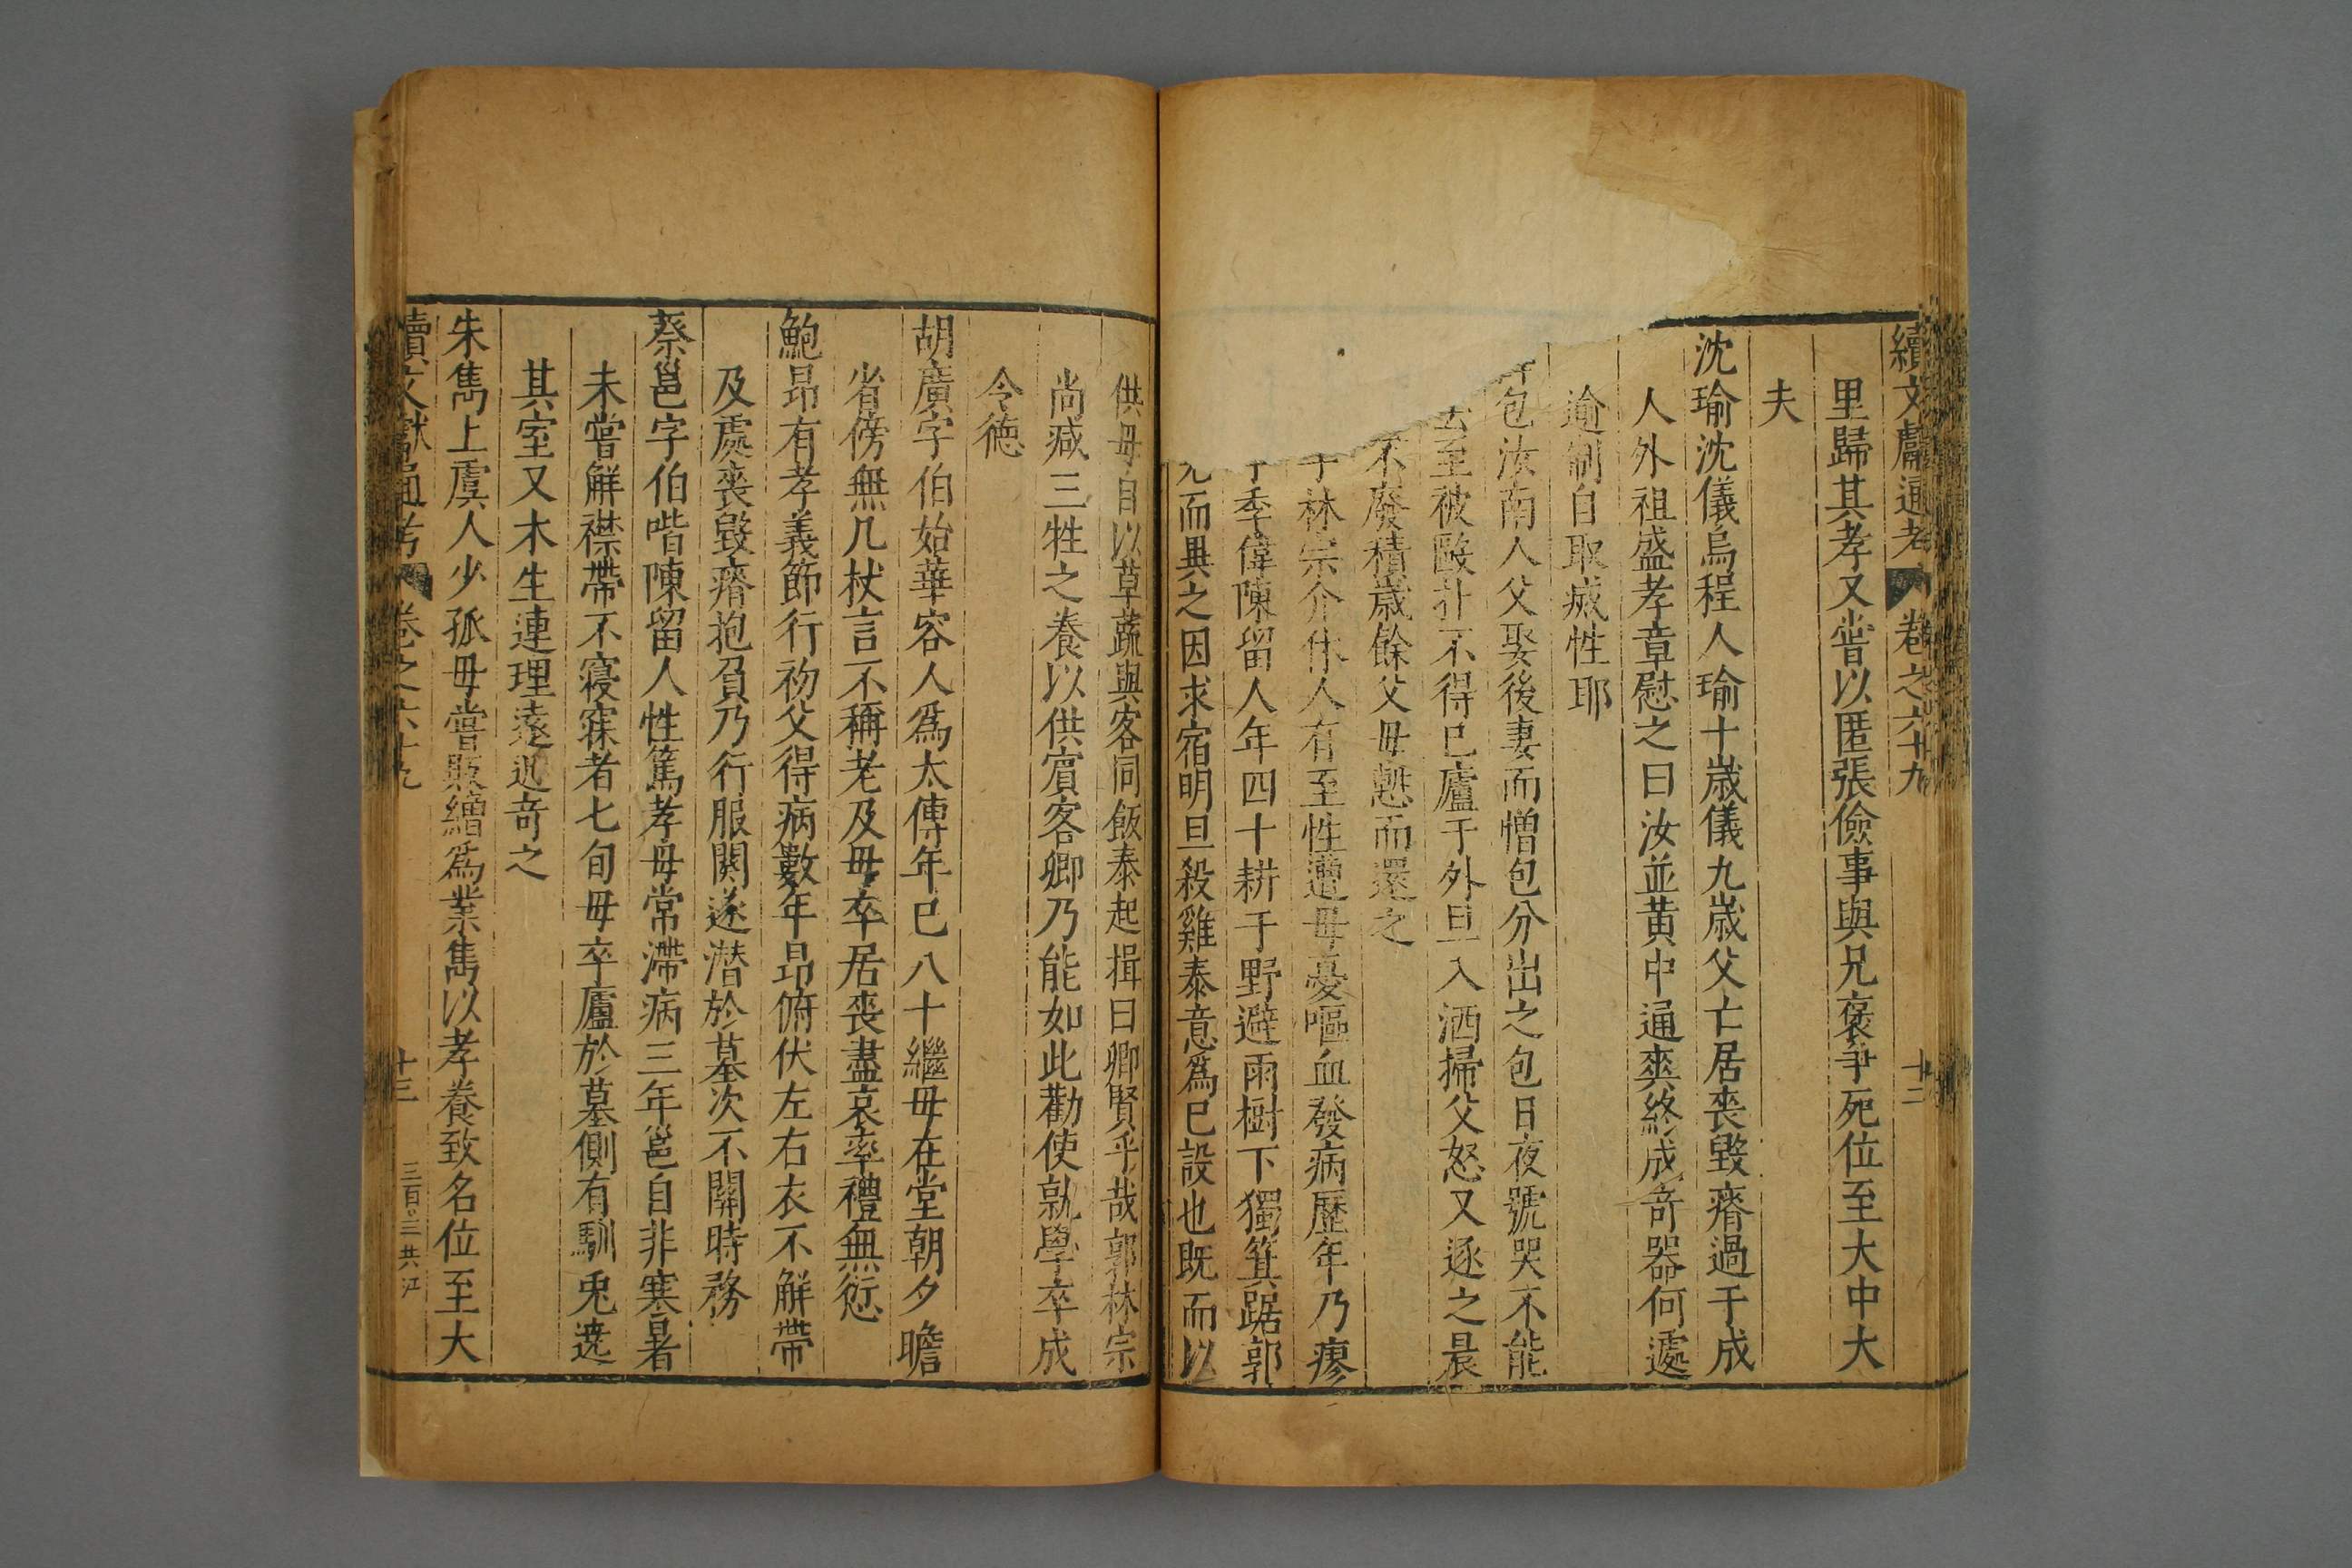 續文獻通考 卷之六十九 十二
里歸其孝又嘗以匿張儉事與兄褒爭死位至大中大
夫
沈瑜沈儀烏程人瑜十歲儀九歲父亡居喪毀瘠過于成
人外祖盛孝章慰之曰汝並黃中通爽終成奇器何遽
逾制自取滅性耶
包汝南人父娶後妻而憎包分出之包日夜號哭不能
去至被毆扑不得已廬于外旦入洒掃父怒又逐之晨
不廢積歲餘父母慙而還之
林宗介休人有至性遭母憂嘔血發病歷年乃瘳
季偉陳留人年四十耕于野避雨樹下獨箕踞郭
見而異之因求宿明旦殺雞泰意爲己設也既而以
供母自以草蔬與客同飯泰起揖曰卿賢乎哉郭林宗
尚减三牲之養以供賓客卿乃能如此勸使就學卒成
令德
胡廣字伯始華容人爲太傅年已八十繼母在堂朝夕瞻
省傍無几杖言不稱老及母卒居喪盡哀率禮無愆
鮑昂有孝義節行初父得病數年昂俯伏左右衣不解帶
及處喪毀瘠抱負乃行服闋遂潛於墓次不關時務
蔡邕字伯喈陳留人性篤孝母常滯病三年邕自非寒暑
未嘗解襟帶不寢寐者七旬母卒廬於墓側有馴兎遶
其室又木生連理遠近奇之
朱雋上虞人少孤母嘗販繒爲業雋以孝養致名位至大
續文獻通考 卷之六十九 十三 三百三 共江